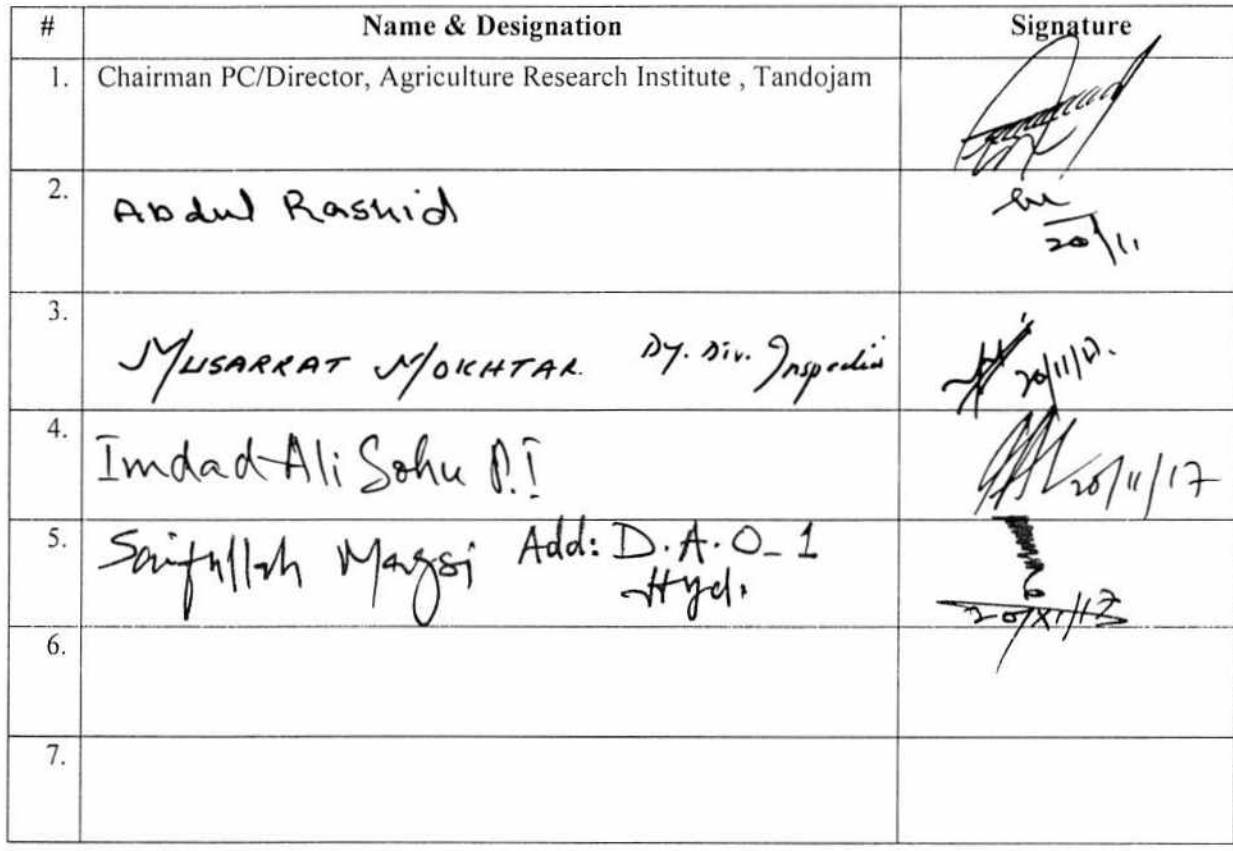 # Name & Designation Signature
1. Chairman PC/Director, Agriculture Research Institute , Tandojam
2. Abdul Rashid
20/11
3. MUSARRAT MOKHTAR Dy. Div. 20/11/17.
4. Imdad Ali Sohu P.I 20/11/17
5. Saifullah Magsi Add: D.A.O_1
Hyd. 20/XI/17
6.
7.